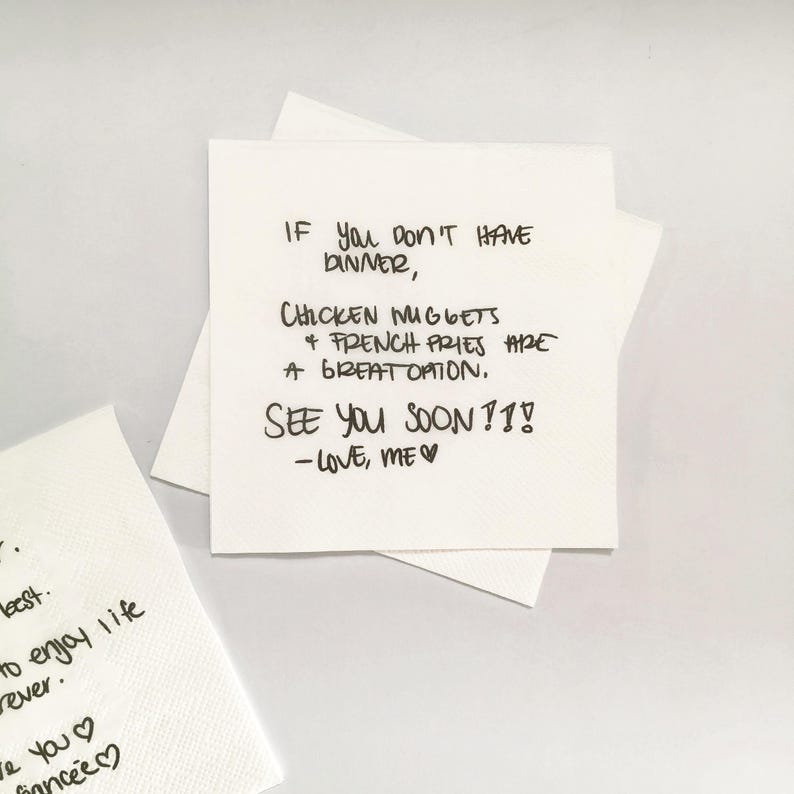 IF YOU DON'T HAVE
DINNER,
CHICKEN NUGGETS
& FRENCH FRIES ARE
A GREAT OPTION.
SEE YOU SOON!!!
-LOVE, ME♥
best.
to enjoy life
you♡
fiancée♡